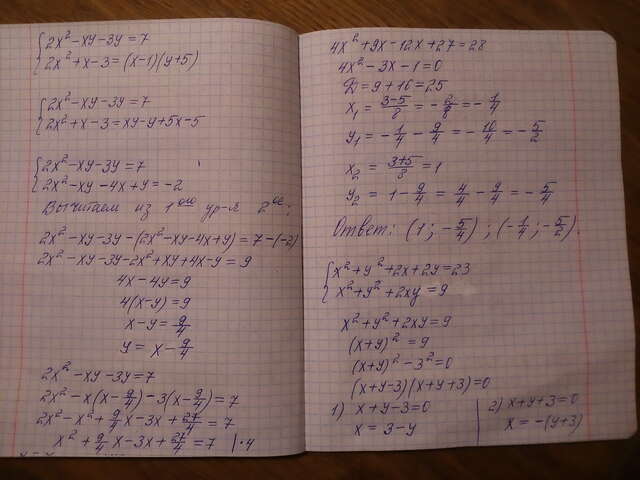 {2x² - xy - 3y = 7
{2x² + x - 3 = (x-1)(y+5)
{2x² - xy - 3y = 7
{2x² + x - 3 = xy - y + 5x - 5
{2x² - xy - 3y = 7
{2x² - xy - 4x + y = -2
Вычитаем из 1ого ур-я 2ое:
2x² - xy - 3y - (2x² - xy - 4x + y) = 7 - (-2)
2x² - xy - 3y - 2x² + xy + 4x - y = 9
4x - 4y = 9
4(x-y) = 9
x - y = 9/4
y = x - 9/4
2x² - xy - 3y = 7
2x² - x(x - 9/4) - 3(x - 9/4) = 7
2x² - x² + 9/4 x - 3x + 27/4 = 7
x² + 9/4 x - 3x + 27/4 = 7 |·4
4x² + 9x - 12x + 27 = 28
4x² - 3x - 1 = 0
D = 9 + 16 = 25
x₁ = (3-5)/8 = -2/8 = -1/4
y₁ = -1/4 - 9/4 = -10/4 = -5/2
x₂ = (3+5)/8 = 1
y₂ = 1 - 9/4 = 4/4 - 9/4 = -5/4
Ответ: (1; -5/4); (-1/4; -5/2).
{x² + y² + 2x + 2y = 23
{x² + y² + 2xy = 9
x² + y² + 2xy = 9
(x+y)² = 9
(x+y)² - 3² = 0
(x+y-3)(x+y+3) = 0
1) x + y - 3 = 0 | 2) x + y + 3 = 0
x = 3 - y | x = -(y+3)